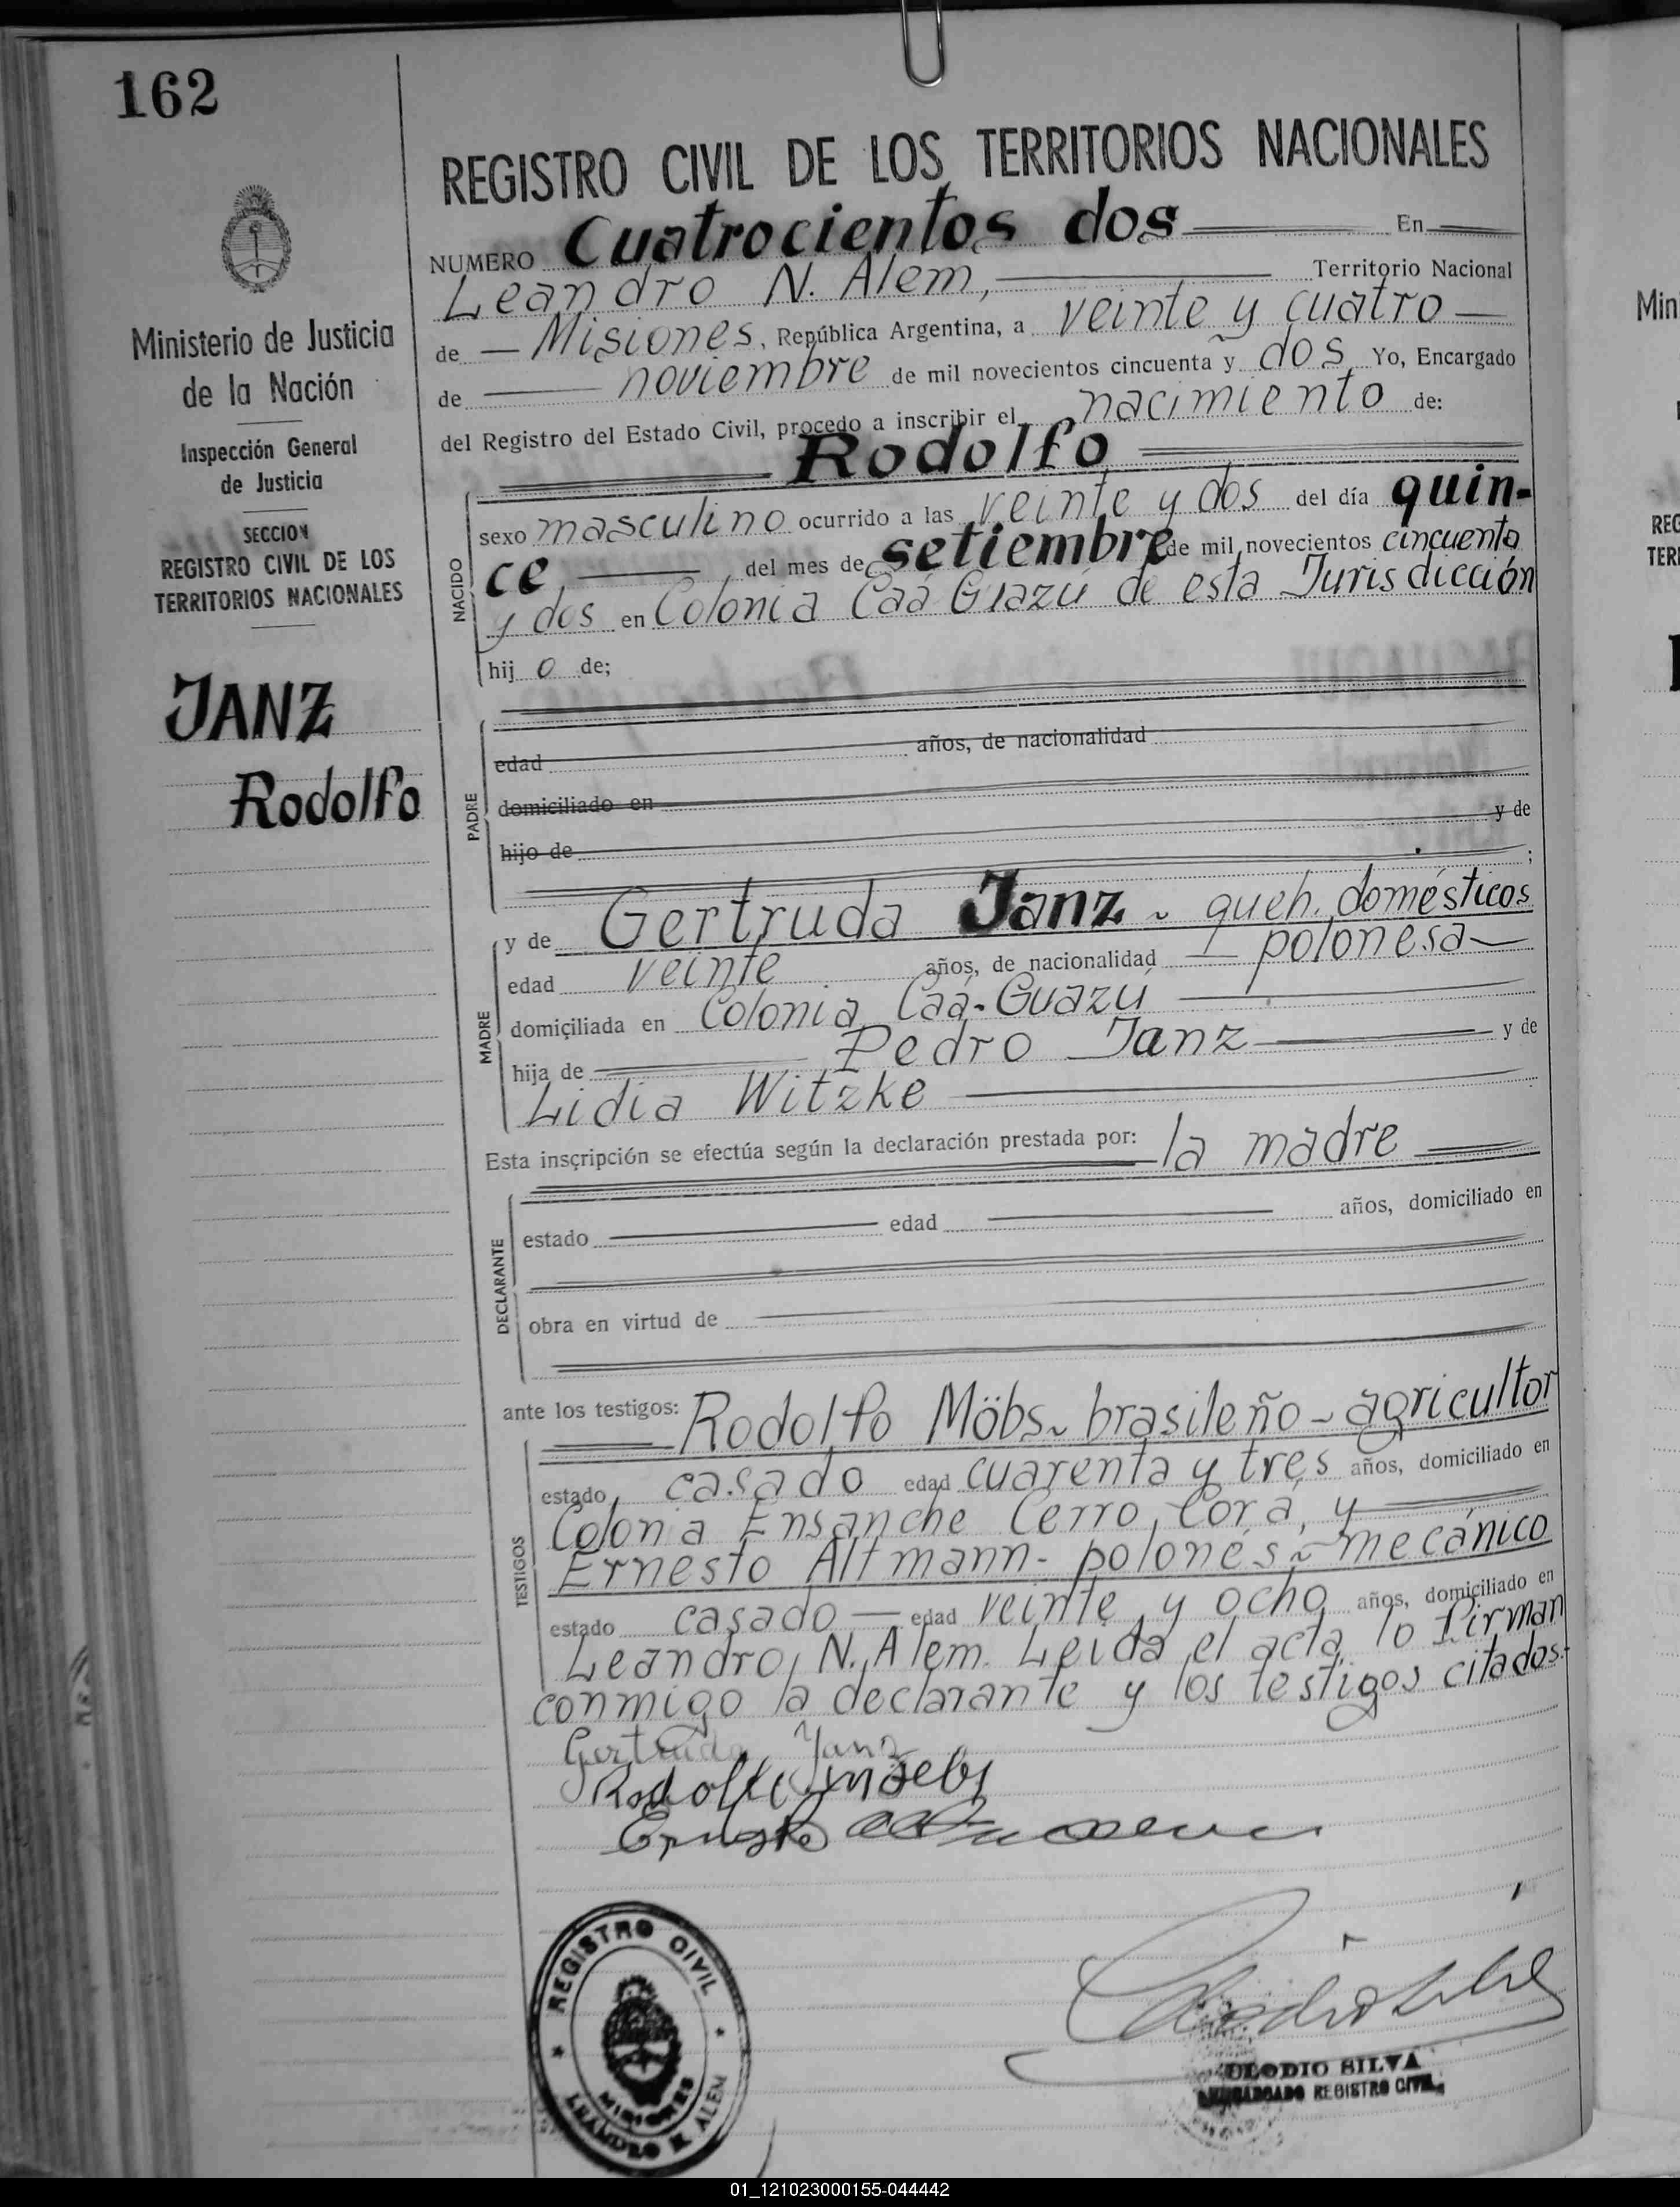 162
REGISTRO CIVIL DE LOS TERRITORIOS NACIONALES
NUMERO Cuatrocientos dos En
Leandro N. Alem, Territorio Nacional
de Misiones, República Argentina, a veinte y cuatro
de noviembre de mil novecientos cincuenta y dos Yo, Encargado
del Registro del Estado Civil, procedo a inscribir el nacimiento de:
Rodolfo
Ministerio de Justicia
de la Nación
Inspección General
de Justicia
SECCION
REGISTRO CIVIL DE LOS
TERRITORIOS NACIONALES
JANZ
Rodolfo
NACIDO
sexo masculino ocurrido a las veinte y dos del día quin-
ce del mes de setiembre de mil novecientos cincuenta
y dos en Colonia Caá Guazú de esta Jurisdicción
hijo de;
PADRE
edad años, de nacionalidad
domiciliado en
hijo de y de
;
MADRE
y de Gertruda Janz ~ queh. domésticos
edad veinte años, de nacionalidad polonesa
domiciliada en Colonia Caá-Guazú
hija de Pedro Janz y de
Lidia Witzke
Esta inscripción se efectúa según la declaración prestada por: la madre
DECLARANTE
estado edad años, domiciliado en
obra en virtud de
ante los testigos: Rodolfo Möbs ~ brasileño ~ agricultor
TESTIGOS
estado casado edad cuarenta y tres años, domiciliado en
Colonia Ensanche Cerro Corá, y
Ernesto Altmann - polonés ~ mecánico
estado casado edad veinte y ocho años, domiciliado en
Leandro N. Alem. Leida el acta, lo firman
conmigo la declarante y los testigos citados.-
Gertruda Janz
Rodolfo Moebs
Ernesto
REGISTRO CIVIL
MISIONES
LEANDRO N. ALEM
CLODIO SILVA
ENCARGADO REGISTRO CIVIL
01_121023000155-044442